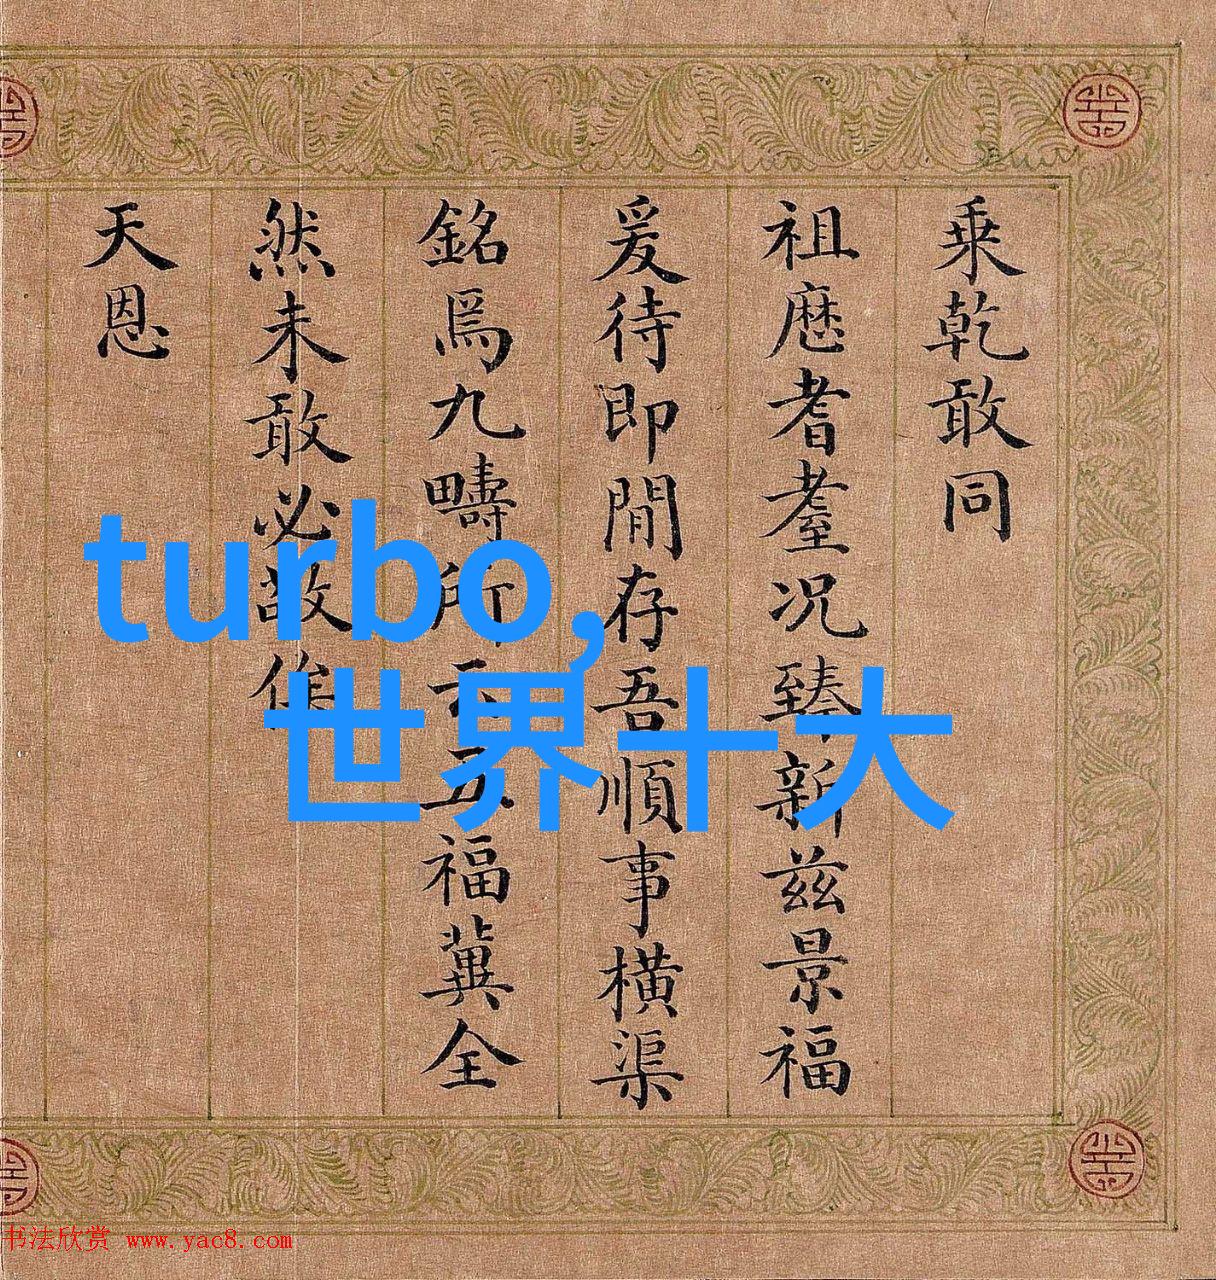 乗乾敢同
祖歷耆耋况臻新兹景福
爰待即間存吾順事横渠
銘爲九疇所云五福冀全
然未敢必故作
天恩
turbo,
世界十大
书法欣赏 www.yac8.com